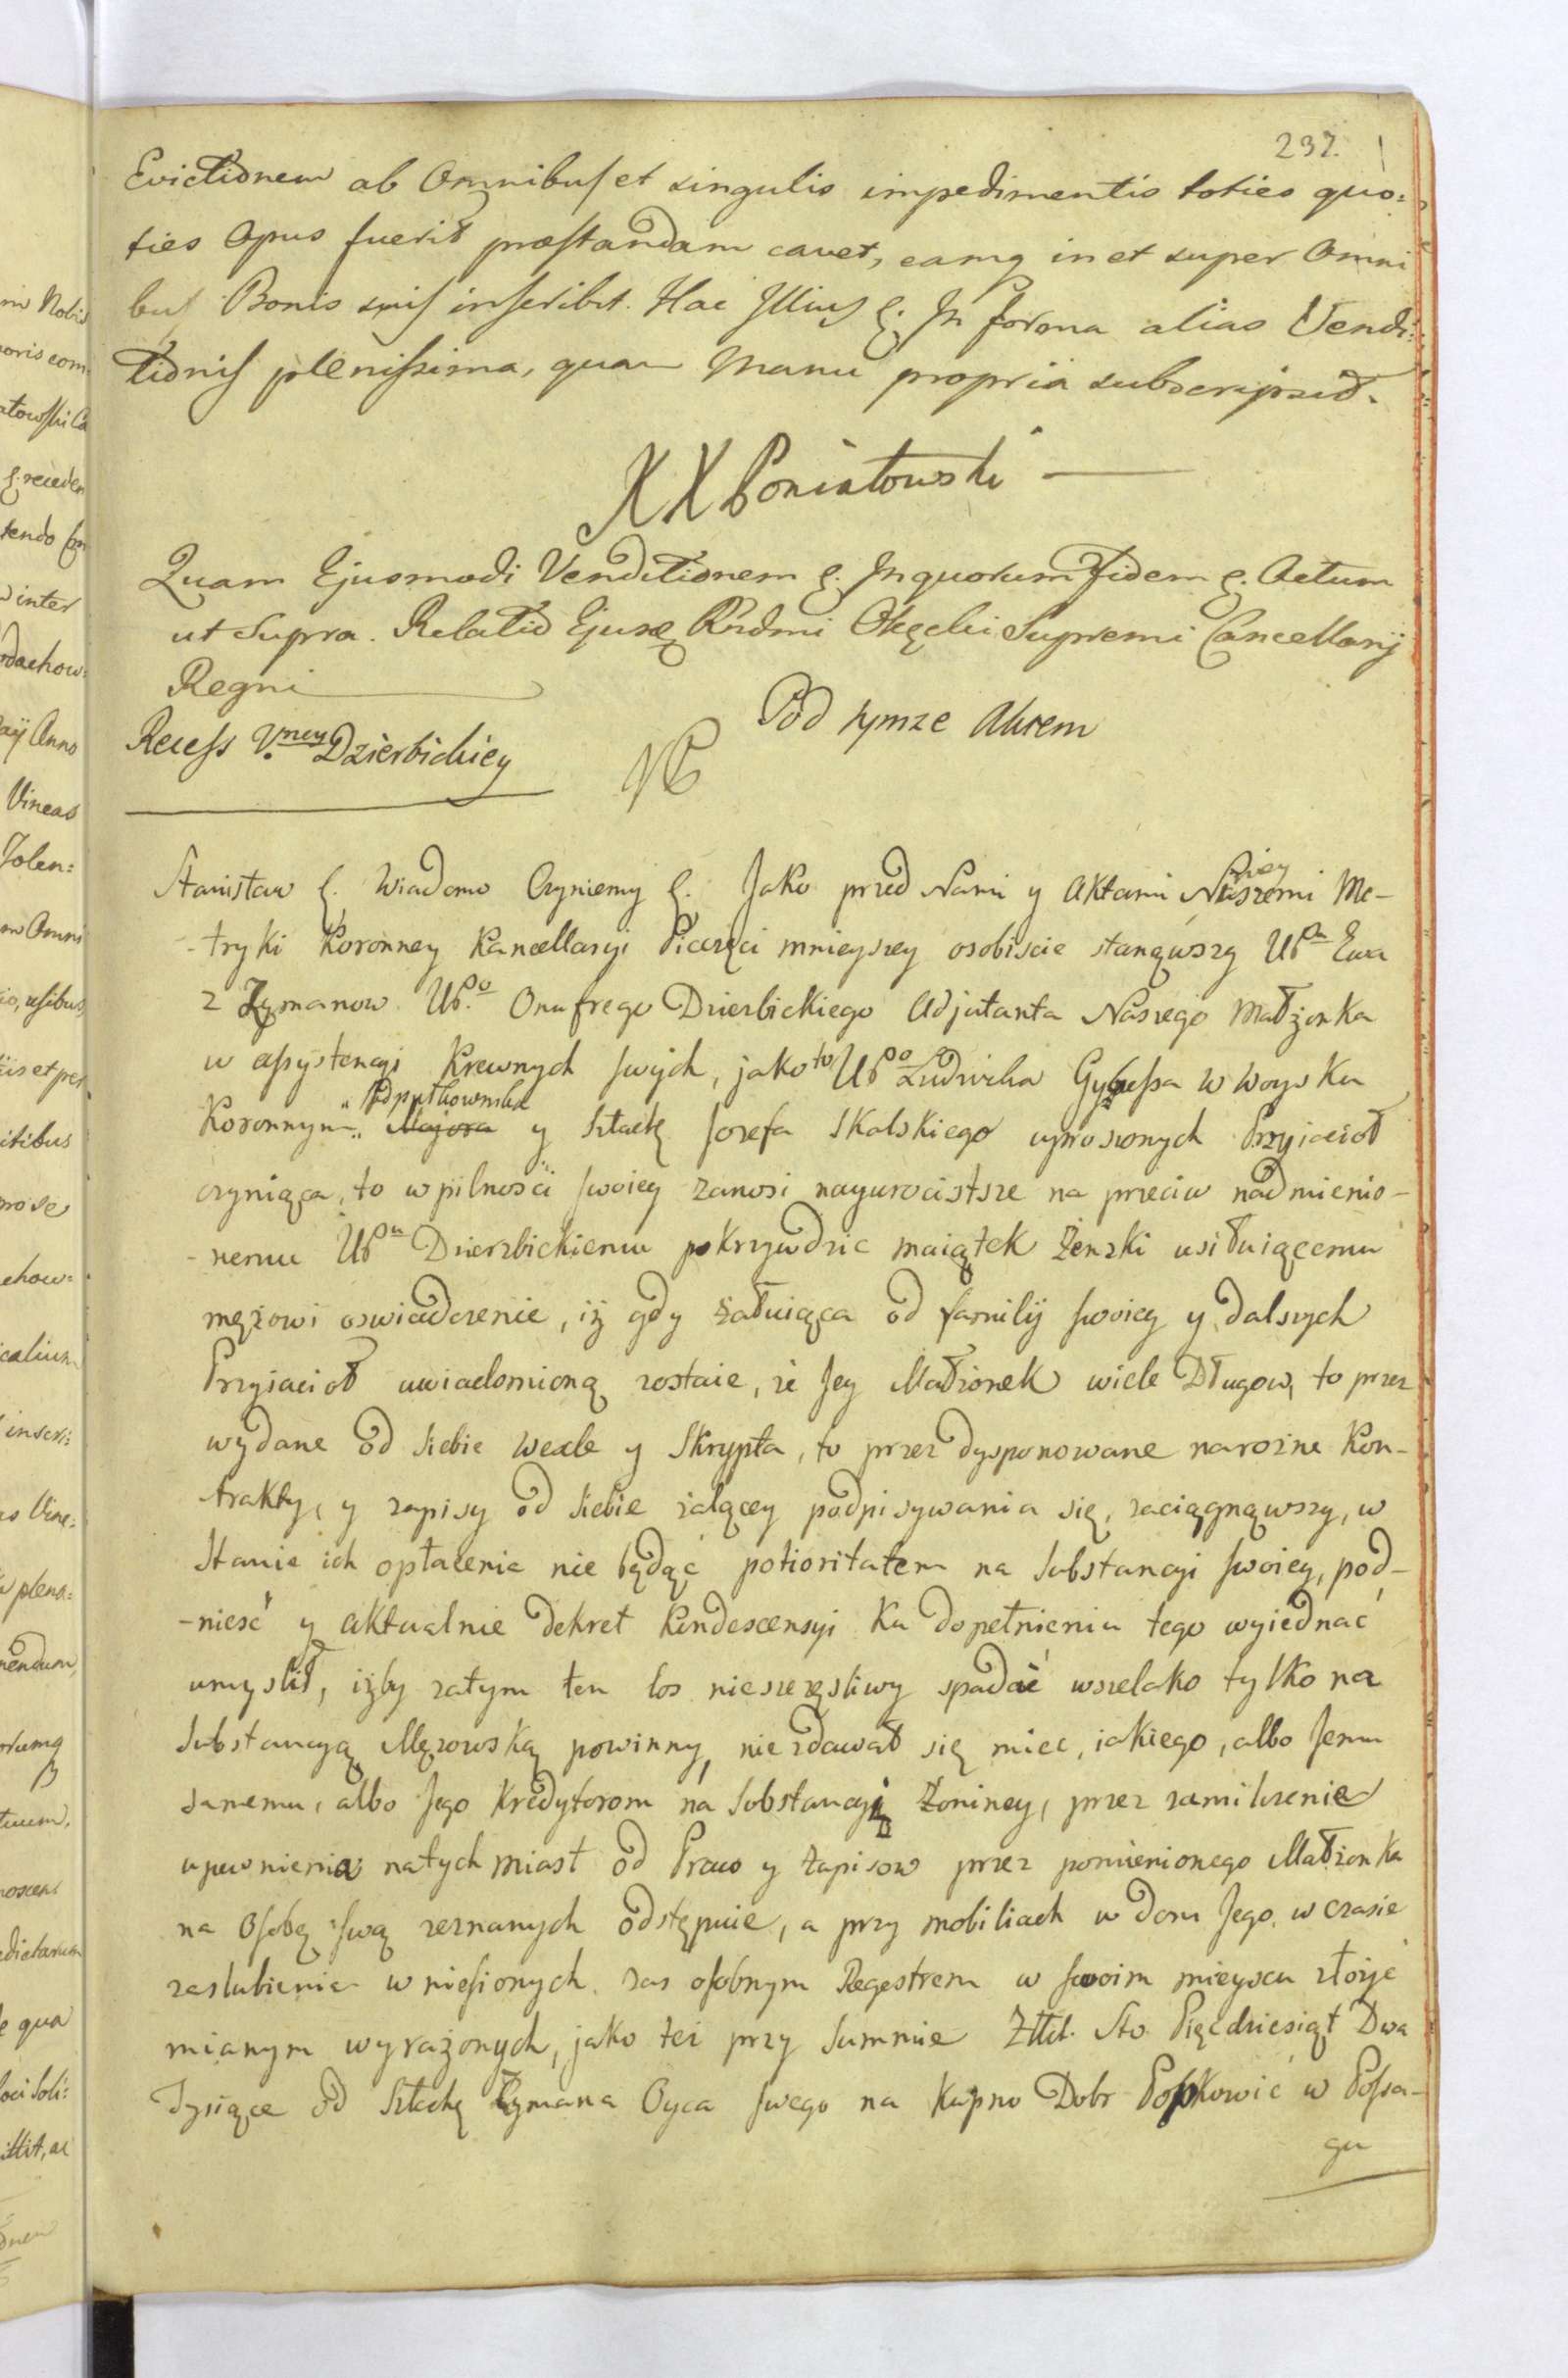 237.
Evictionem ab Omnibus et singulis impedimentis toties quo:
ties Opus fuerit præstandam cavet, eamq in et super Omni
bus Bonis suis inscribit. Hac Illius &. In forma alias Vendi:
tionis plenissima, quam Manu propria subscripsit.
XX Poniatowski
Quam Ejusmodi Venditionem &. In quorum Fidem &. Actum
ut Supra. Relatio Ejusq Rndmi Okęcki Supremi Cancellarij
Regni
Pod tymze Aktem
Recess V.ney Dzierbickiey
Stanisław &. Wiadomo Czyniemy &. Jako przed Nami y Aktami Naszemi Me-
-tryki Koronney Kancellaryi Pieczęci mnieyszey osobiscie stanąwszy Ur Ewa
z Zymanow Ur.o Onufrego Dzierbickiego Adjutanta Naszego Małżonka
w assystencyi Krewnych swych, jako to Ur Ludwika w Woysku
Podpułkownika
Koronnym Majora y Szlachę Jozefa Skalskiego uproszonych Przyiacioł
czyniąca, to w pilności swoiey zanosi nayuroczistsze na przeciw nadmienio-
-nemu Ur Dzierzbickiemu pokrzywdzic maiątek Zenski usiłuiącemu
mężowi oswiadczenie, iż gdy żałuiąca od familij swoiey y dalszych
Przyiacioł uwiadomioną zostaie, że Jey Małżonek wiele Długow, to przez
wydane od siebie wexle y Skrypta, to przez dysponowane na rożne Kon-
trakty, y zapisy od siebie żalącey podpisywania się, zaciągnąwszy, w
Stanie ich opłacenia nie będąc potioritatem na Substancyi swoiey, pod-
-nieść y aktualnie Dekret Kondescensyi Ku dopełnieniu tego wyiednać
umyslił, iżby zatym ten los nieszczęsliwy spadać wszelako tylko na
Substancyą Mężowską powinny, nie zdawał się miec, iakiego, albo Jemu
samemu, albo Jego Kredytorom na Substancyi Żoniney, przez zamilczenie
upewnienia natychmiast od Praw y Zapisow przez pomienionego Małżonka
na Osobę swą zeznanych odstępuie, a przy mobiliach w Dom Jego, w czasie
zaslubienia wniesionych zas osobnym Regestrem w swoim mieyscu złożyc
mianym wyrażonych, jako też przy Summie Złłt. Sto Pięcdziesiąt Dwa
Tysiące od Szlachę Zymana Oyca swego na Kupno Dobr Popkowic w Possa-
gu